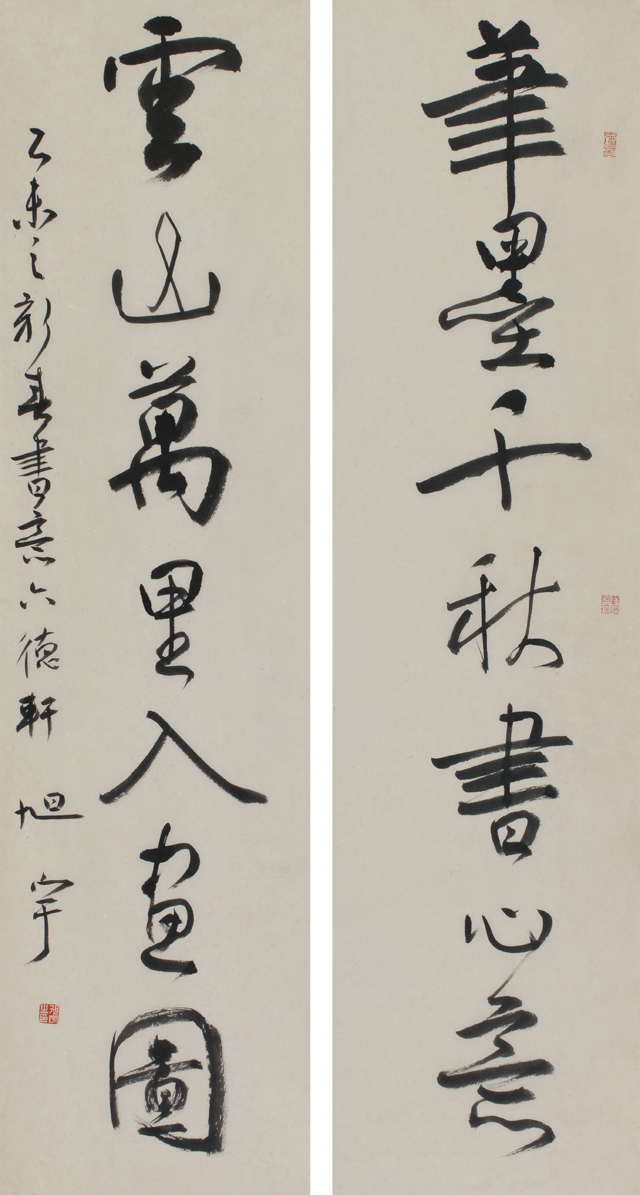 筆墨千秋書心意
雲山萬里入畫圖
乙未之新春書意六德軒 旭宇